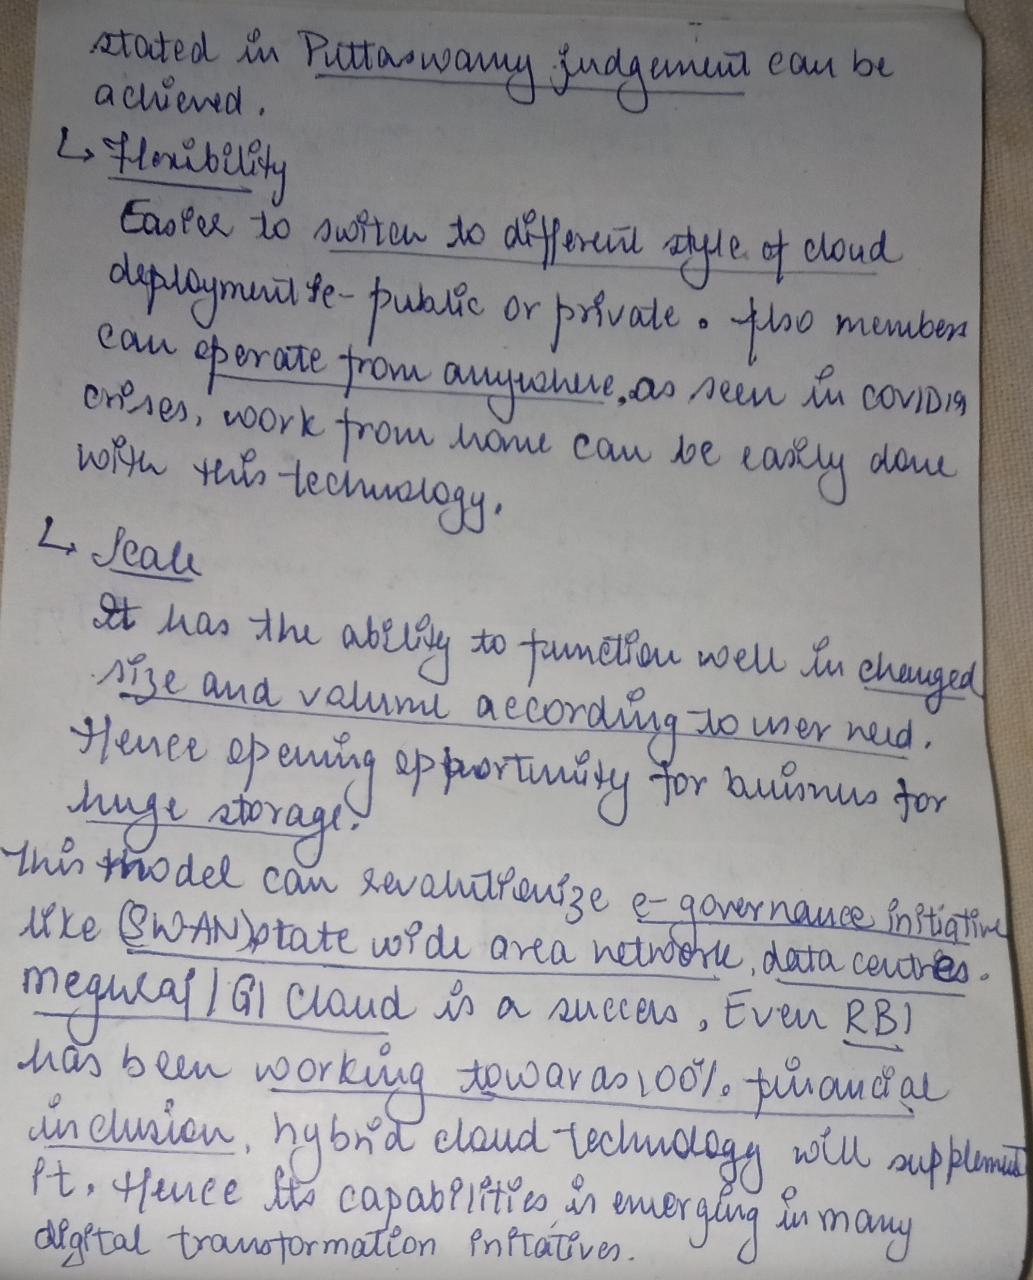 stated in Puttaswamy judgement can be
achieved.
↳ Flexibility
Easier to switch to different style of cloud
deployment ie- public or private. Also members
can operate from anywhere, as seen in COVID19
crises, work from home can be easily done
with this technology.
↳ Scale
It has the ability to function well in changed
size and volume according to user need.
Hence opening opportunity for business for
huge storage.
This model can revolutionize e-governance initiative
like (SWAN) state wide area network, data centres.
Meguraj / GI Cloud is a success, Even RBI
has been working towards 100% financial
inclusion, hybrid cloud technology will supplement
it. Hence its capabilities is emerging in many
digital transformation initatives.